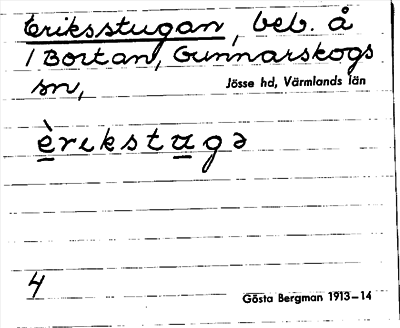 Eriksstugan, beb. å
1 Bortan, Gunnarskogs
sn,
Jösse hd, Värmlands län
èrɩkstaga
4
Gösta Bergman 1913–14